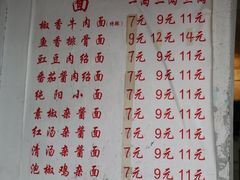 面 一两 二两 三两
椒香牛肉面 7元 9元 11元
鱼香排骨面 9元 12元 14元
豇豆肉绍面 7元 9元 11元
番茄酱肉绍面 7元 9元 11元
纯阳小面 7元 9元 11元
素椒杂酱面 7元 9元 11元
红汤杂酱面 7元 9元 11元
清汤杂酱面 7元 9元 11元
泡椒鸡杂面 7元 9元 11元